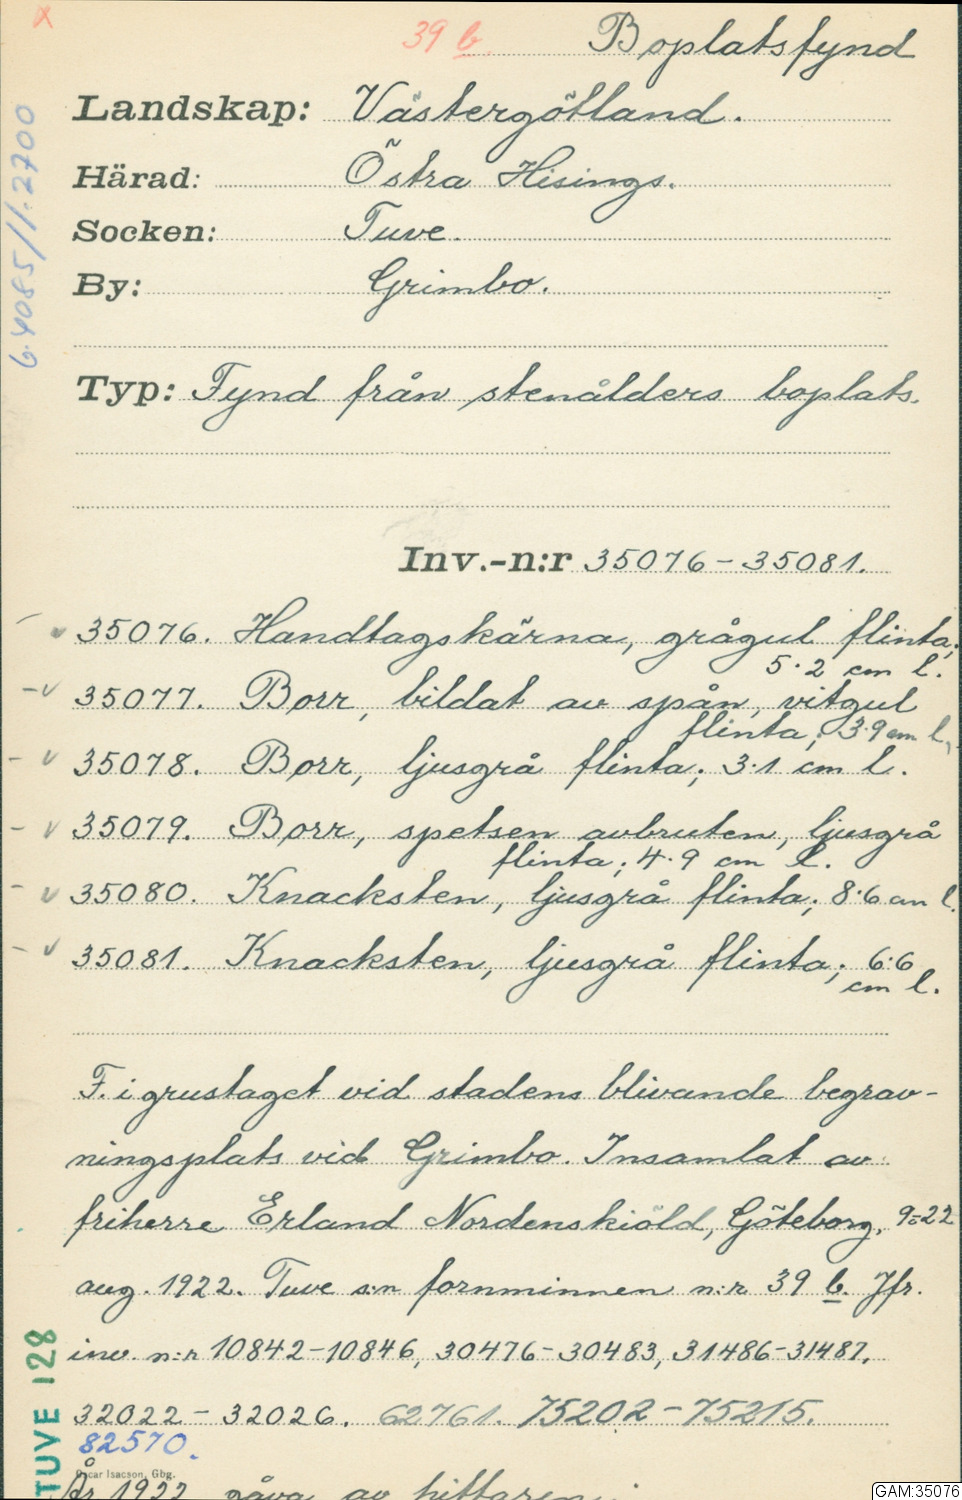 x
39 b. Boplatsfynd
Landskap: Västergötland.
Härad: Östra Hisings.
Socken: Tuve.
By: Grimbo.
Typ: Fynd från stenålders boplats.
Inv.-n:r 35076-35081.
- v 35076. Handtagskärna, grågul flinta;
5.2 cm l.
- v 35077. Borr, bildat av spån, vitgul
flinta; 3.9 cm l.
- v 35078. Borr, ljusgrå flinta; 3.1 cm l.
- v 35079. Borr, spetsen avbruten, ljusgrå
flinta; 4.9 cm l.
- v 35080. Knacksten, ljusgrå flinta; 8.6 cm l.
- v 35081. Knacksten, ljusgrå flinta; 6.6
cm l.
F. i grustaget vid stadens blivande begrav-
ningsplats vid Grimbo. Insamlat av
friherre Erland Nordenskiöld, Göteborg, 9-22
aug. 1922. Tuve s:n fornminnen n:r 39 b. Jfr.
inv. n:r 10842-10846, 30476-30483, 31486-31487,
32022-32026. 62761. 75202-75215.
82570.
Oscar Isacson, Gbg.
År 1922 gåva av hittaren
TUVE 128
6.4085/1:2700
GAM:35076